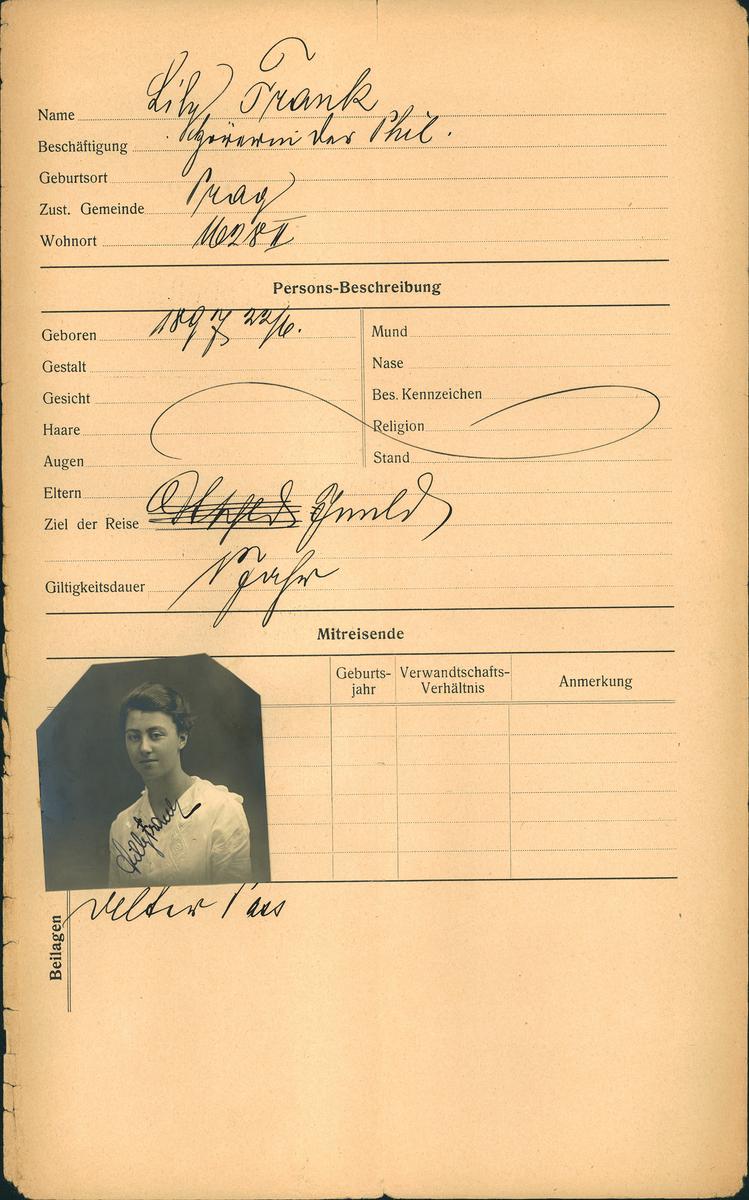 Name Lily Frank
Beschäftigung Hörerin der Phil.
Geburtsort
Zust. Gemeinde Prag
Wohnort 1628 II
Persons-Beschreibung
Geboren 1897 22/6.
Mund
Gestalt
Nase
Gesicht
Bes. Kennzeichen
Haare
Religion
Augen
Stand
Eltern
Ziel der Reise
Giltigkeitsdauer 1 Jahr
Mitreisende
Geburts-
jahr
Verwandtschafts-
Verhältnis
Anmerkung
Lilly Frank
Beilagen alter Pass